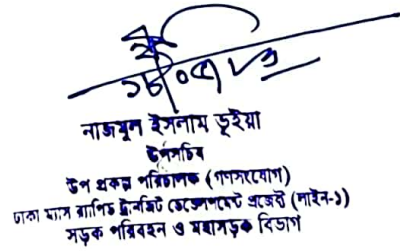 নাজমুল ইসলাম ভূইয়া
উপসচিব
উপ প্রকল্প পরিচালক (গণসংযোগ)
ঢাকা ম্যাস র‍্যাপিড ট্রানজিট ডেভেলপমেন্ট প্রজেক্ট (লাইন-১)
সড়ক পরিবহন ও মহাসড়ক বিভাগ